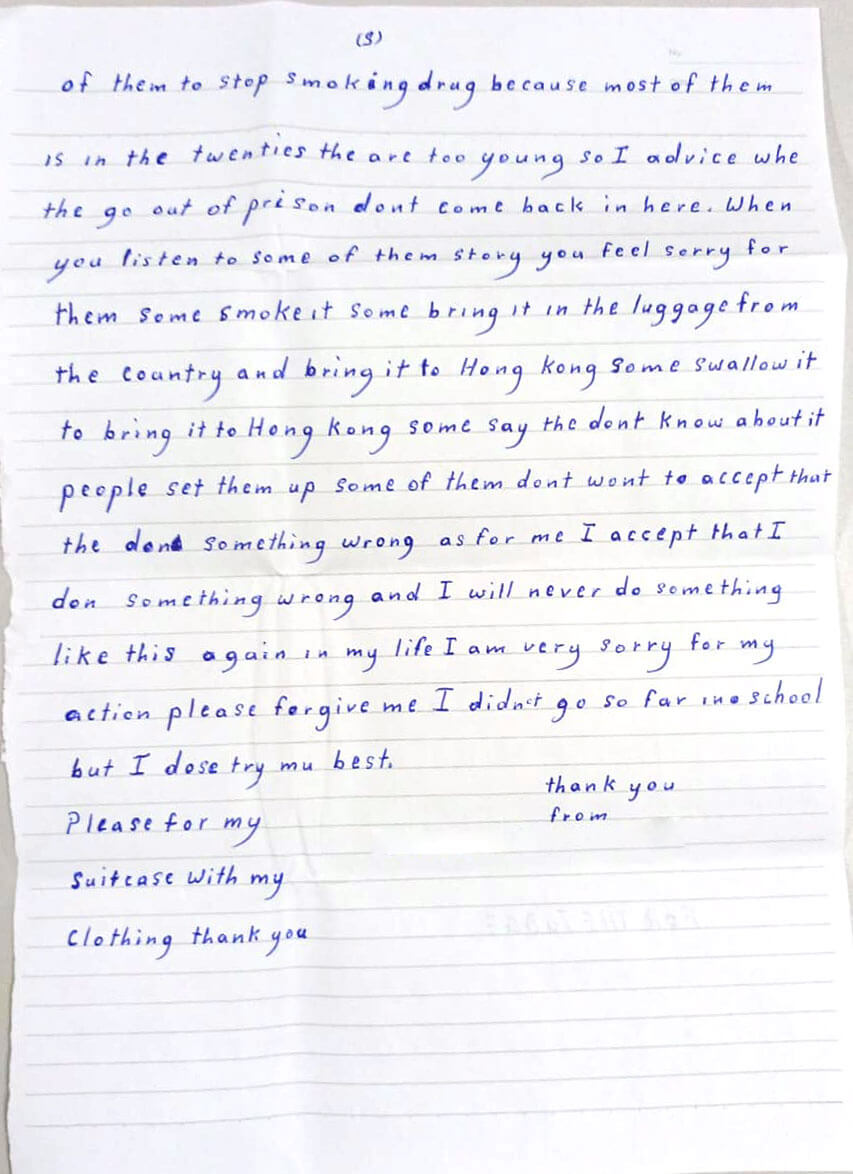 (3)
of them to stop smoking drug because most of them
is in the twenties the are too young so I advice whe
the go out of prison dont come back in here. When
you listen to some of them story you feel sorry for
them some smoke it some bring it in the luggage from
the country and bring it to Hong kong some swallow it
to bring it to Hong kong some say the dont know about it
people set them up some of them dont wont to accept that
the don something wrong as for me I accept that I
don something wrong and I will never do something
like this again in my life I am very sorry for my
action please forgive me I didnet go so far in school
but I dose try mu best.
thank you
from
Please for my
Suitcase with my
Clothing thank you